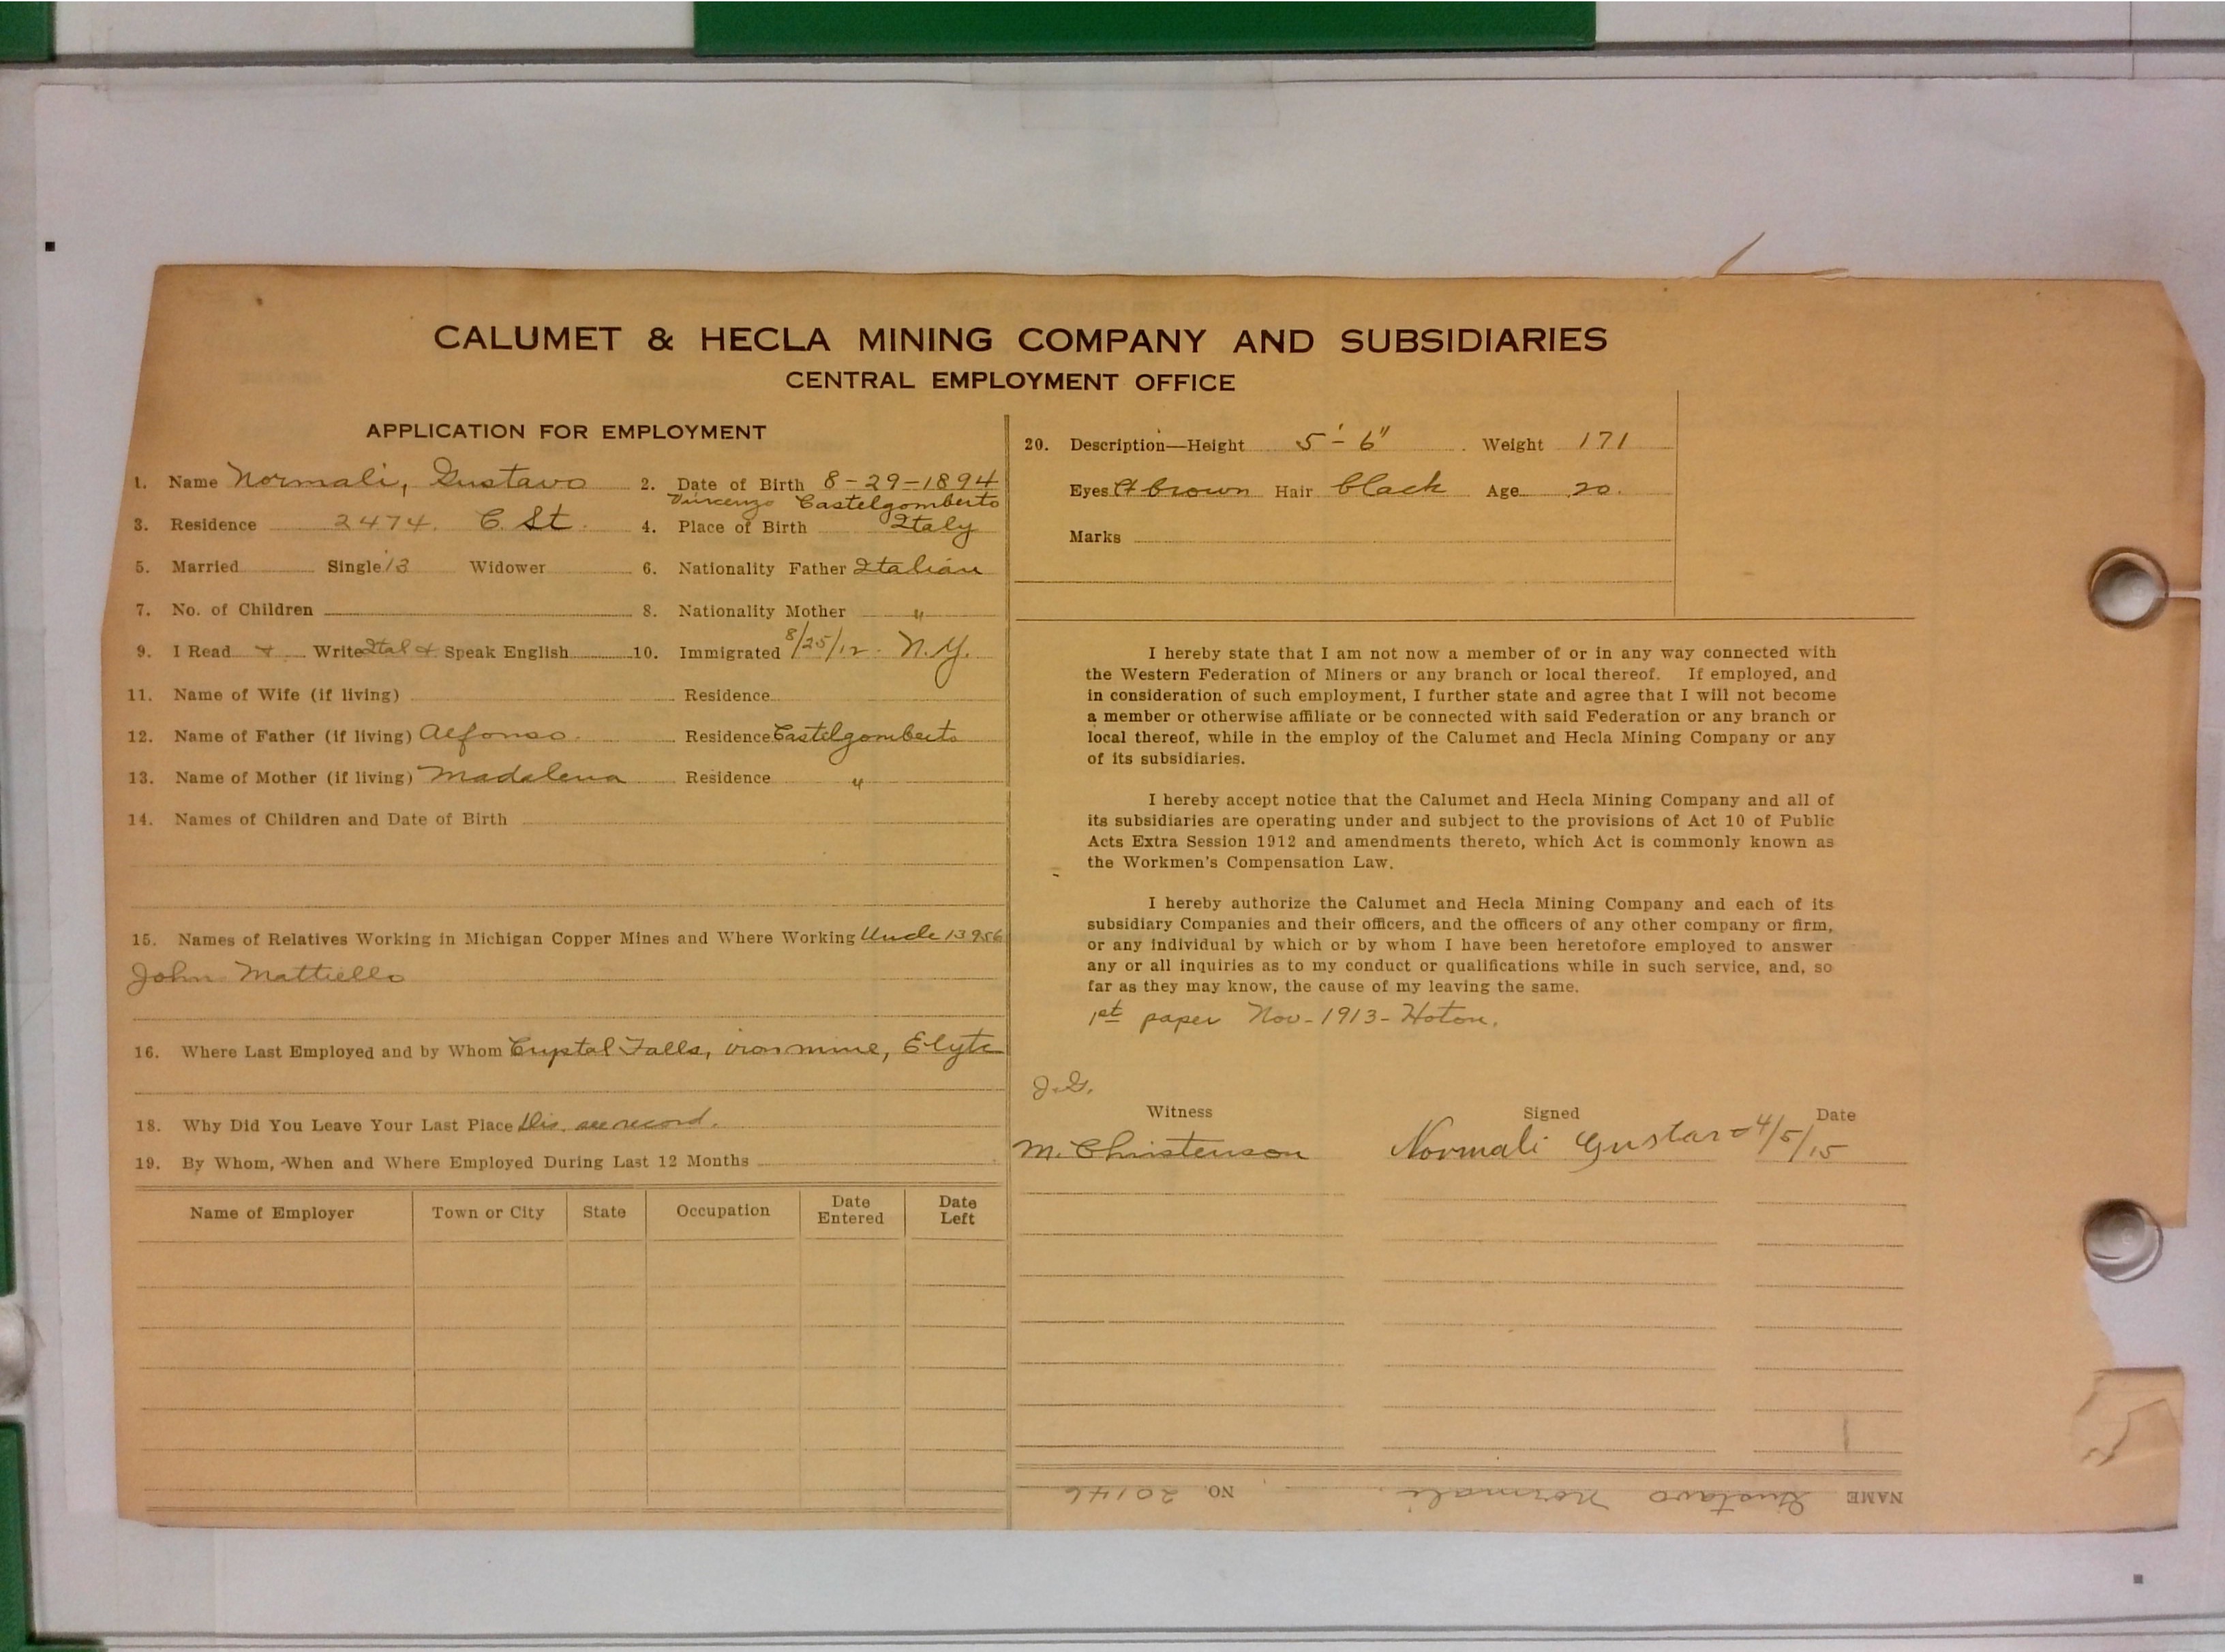 CALUMET & HECLA MINING COMPANY AND SUBSIDIARIES
CENTRAL EMPLOYMENT OFFICE
APPLICATION FOR EMPLOYMENT
1. Name Normali, Gustavo 2. Date of Birth 8-29-1894
Vincenzo Castelgomberto
3. Residence 2474 C. St. 4. Place of Birth Italy
5. Married Single 13 Widower 6. Nationality Father Italian
7. No. of Children 8. Nationality Mother "
9. I Read + Write Ital + Speak English 10. Immigrated 8/25/12. N.Y.
11. Name of Wife (if living) Residence
12. Name of Father (if living) Alfonso Residence Castelgomberto
13. Name of Mother (if living) Madalena Residence "
14. Names of Children and Date of Birth
15. Names of Relatives Working in Michigan Copper Mines and Where Working Uncle 13956
John Mattiello
16. Where Last Employed and by Whom Crystal Falls, iron mine,
18. Why Did You Leave Your Last Place Dis. see record.
19. By Whom, When and Where Employed During Last 12 Months
Name of Employer Town or City State Occupation Date Entered Date Left
20. Description—Height 5'-6" Weight 171
Eyes brown Hair black Age 20.
Marks
I hereby state that I am not now a member of or in any way connected with
the Western Federation of Miners or any branch or local thereof. If employed, and
in consideration of such employment, I further state and agree that I will not become
a member or otherwise affiliate or be connected with said Federation or any branch or
local thereof, while in the employ of the Calumet and Hecla Mining Company or any
of its subsidiaries.
I hereby accept notice that the Calumet and Hecla Mining Company and all of
its subsidiaries are operating under and subject to the provisions of Act 10 of Public
Acts Extra Session 1912 and amendments thereto, which Act is commonly known as
the Workmen's Compensation Law.
I hereby authorize the Calumet and Hecla Mining Company and each of its
subsidiary Companies and their officers, and the officers of any other company or firm,
or any individual by which or by whom I have been heretofore employed to answer
any or all inquiries as to my conduct or qualifications while in such service, and, so
far as they may know, the cause of my leaving the same.
1st paper Nov-1913-Hoton.
J.G.
Witness Signed Date
M. Christenson Normali Gustavo 4/5/15
NAME Gustavo Normali NO. 20146